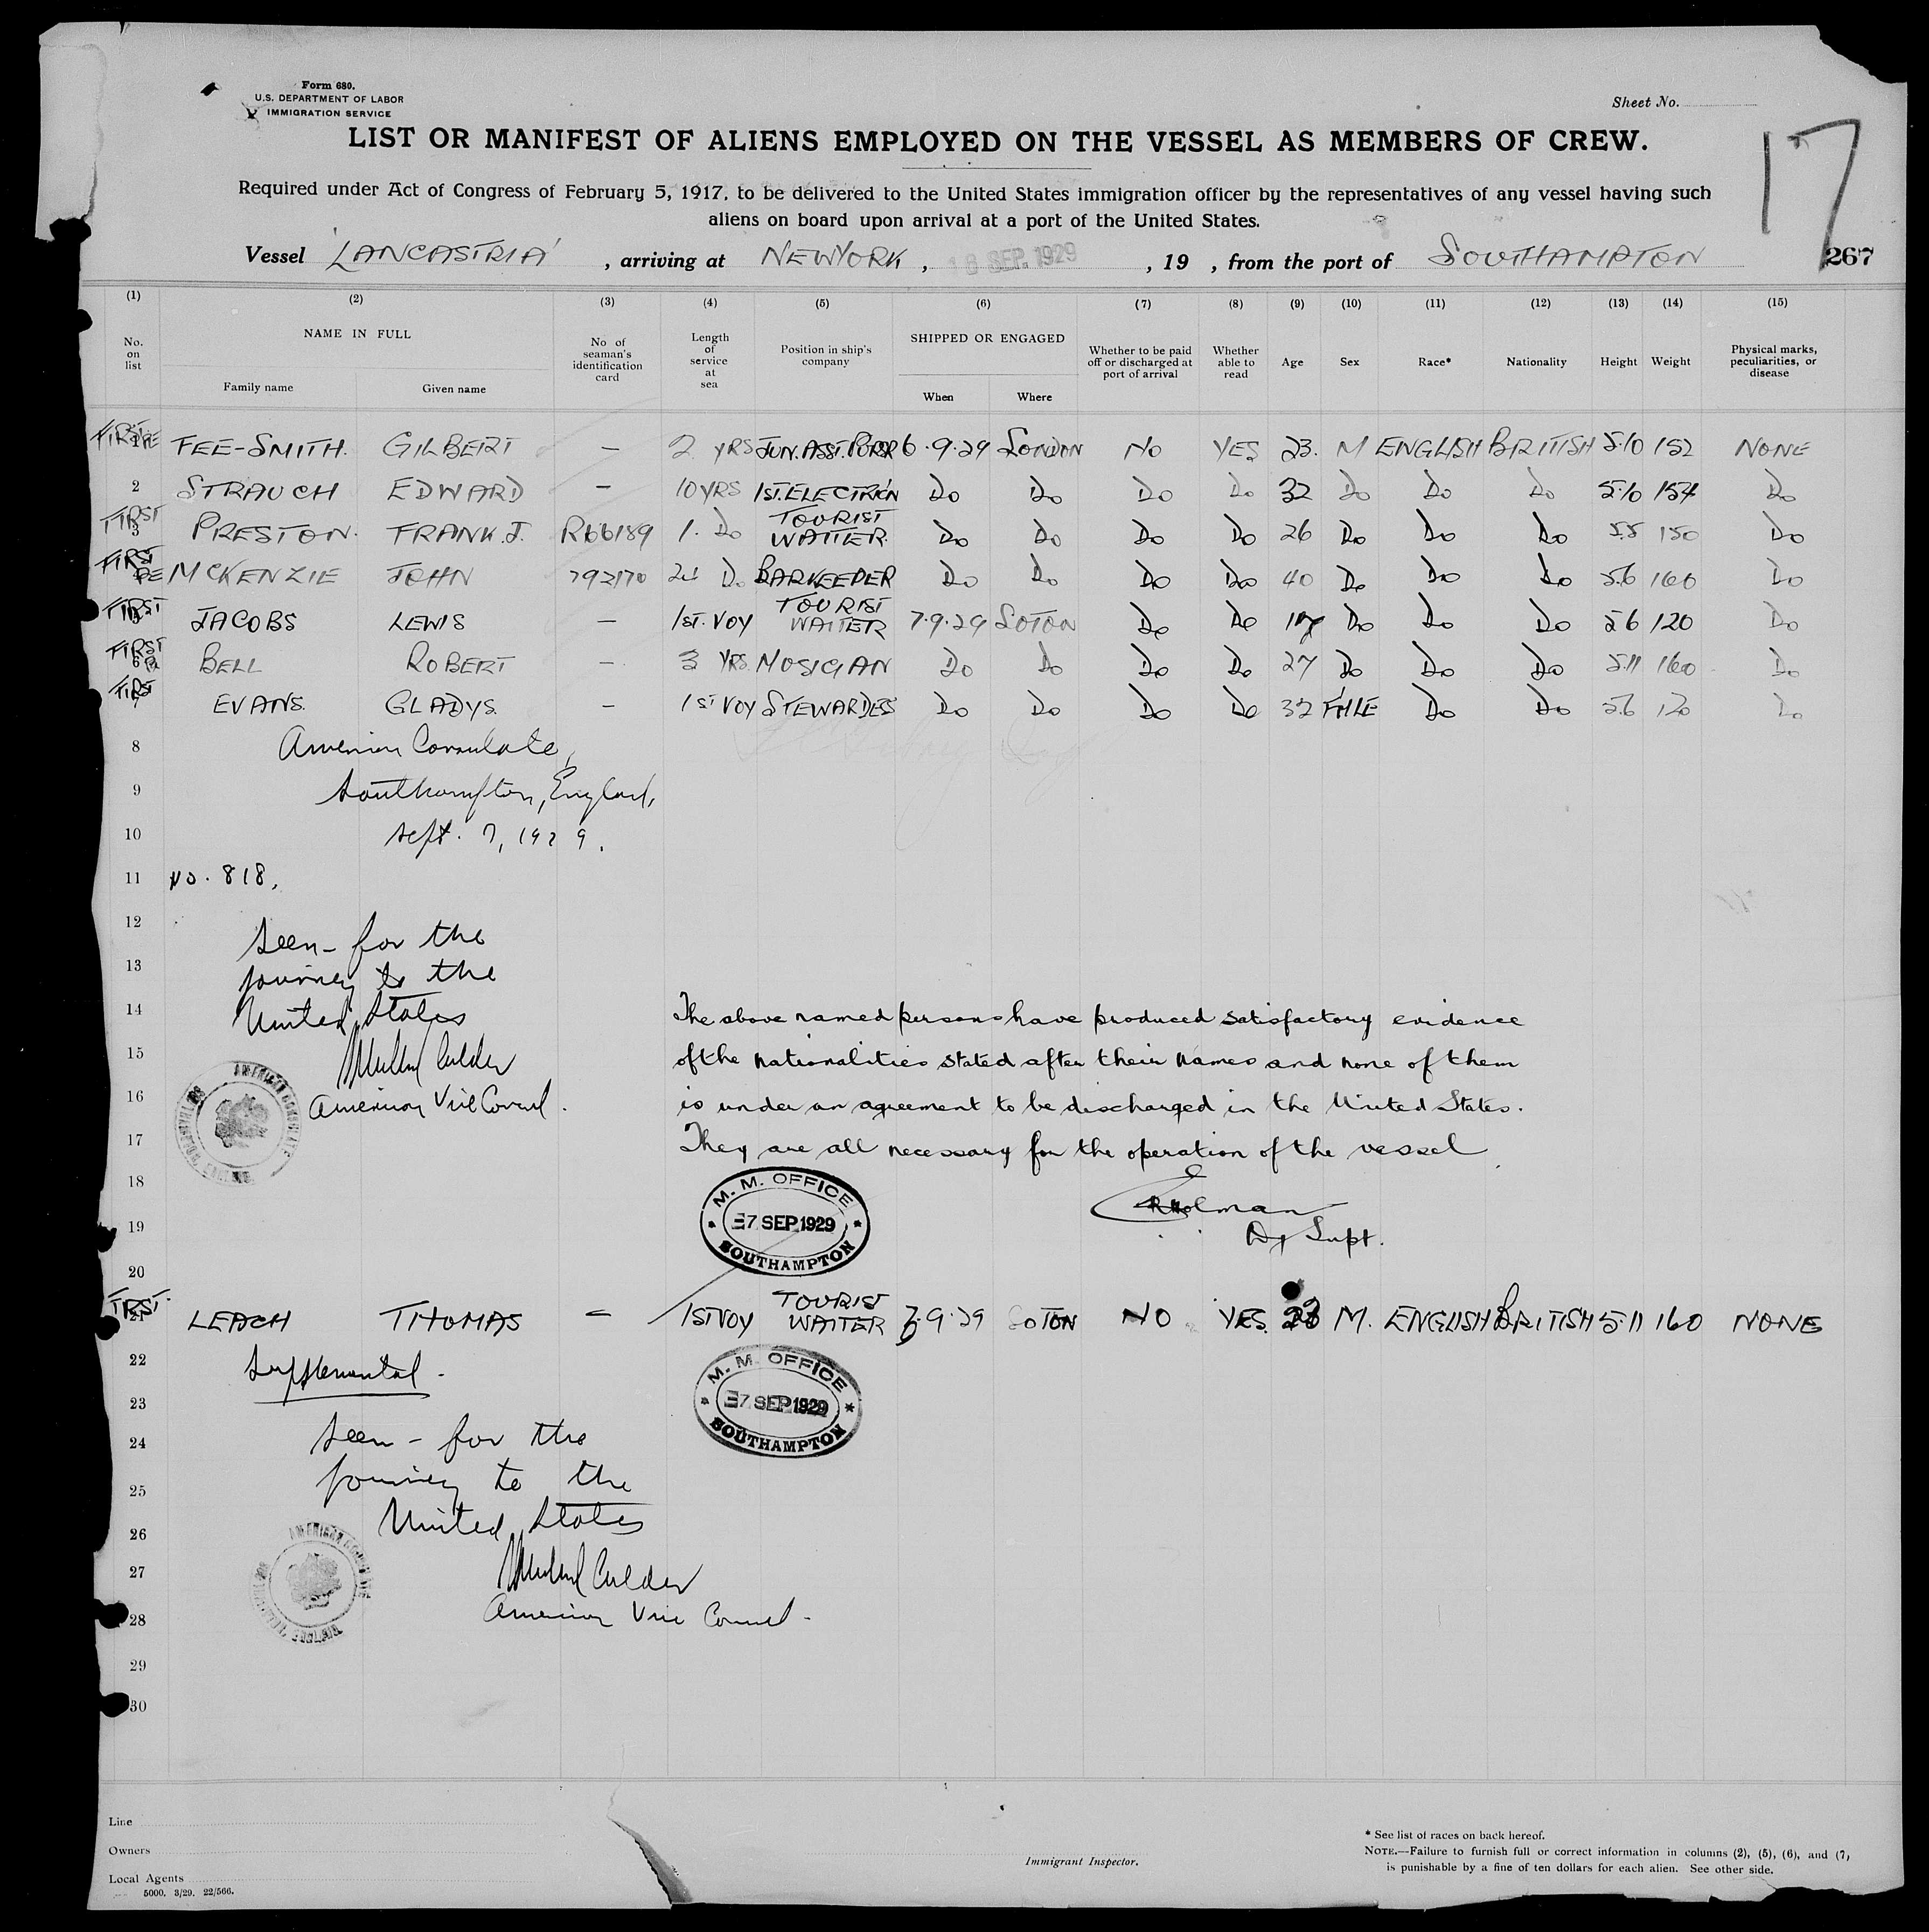 Form 680.
U.S. DEPARTMENT OF LABOR
IMMIGRATION SERVICE
Sheet No.
17
LIST OR MANIFEST OF ALIENS EMPLOYED ON THE VESSEL AS MEMBERS OF CREW.
Required under Act of Congress of February 5, 1917, to be delivered to the United States immigration officer by the representatives of any vessel having such
aliens on board upon arrival at a port of the United States.
Vessel 'LANCASTRIA' , arriving at NEWYORK , 18 SEP. 1929 , 19 , from the port of SOUTHAMPTON 267
(1) (2) (3) (4) (5) (6) (7) (8) (9) (10) (11) (12) (13) (14) (15)
No. on list NAME IN FULL Family name Given name No of seaman's identification card Length of service at sea Position in ship's company SHIPPED OR ENGAGED When Where Whether to be paid off or discharged at port of arrival Whether able to read Age Sex Race* Nationality Height Weight Physical marks, peculiarities, or disease
FIRST FEE-SMITH. GILBERT — 2 YRS JUN.ASST.PURSR 6.9.29 LONDON NO YES 23. M ENGLISH BRITISH 5.10 152 NONE
2 STRAUCH EDWARD — 10 YRS 1ST.ELECTRICN DO DO DO DO 32 DO DO DO 5.10 154 DO
FIRST 3 PRESTON. FRANK.J. R66189 1. DO TOURIST WAITER. DO DO DO DO 26 DO DO DO 5.8 150 DO
FIRST RE MCKENZIE JOHN 792170 24 DO BARKEEPER DO DO DO DO 40 DO DO DO 5.6 160 DO
FIRST JACOBS LEWIS — 1ST.VOY TOURIST WAITER 7.9.29 SOTON DO DO DO DO DO 5 6 120 DO
FIRST 6 BELL ROBERT — 3 YRS MUSICIAN DO DO DO DO 27 DO DO DO 5.11 160 DO
FIRST 7 EVANS. GLADYS. — 1ST VOY STEWARDES DO DO DO DO 32 FMLE DO DO 5.6 120 DO
8 American Consulate,
9 Southampton, England,
10 Sept. 7, 1929.
11 No. 818,
12 Seen - for the
13 journey to the
14 United States
The above named persons have produced satisfactory evidence
15 Calder
of the nationalities stated after their names and none of them
16 American Vice Consul.
is under an agreement to be discharged in the United States.
17 They are all necessary for the operation of the vessel.
AMERICAN CONSULATE
SOUTHAMPTON, ENGLAND
18
M. M. OFFICE
7 SEP 1929
SOUTHAMPTON
Holman
19 Dy Supt.
20
FIRST 21 LEACH THOMAS — 1ST VOY TOURIST WAITER 7.9.29 SOTON NO YES. 23 M. ENGLISH BRITISH 5.11 160 NONE
22 Supplemental.
M. M. OFFICE
7 SEP 1929
SOUTHAMPTON
23
24 Seen - for the
25 journey to the
26 United States
27 Calder
28 American Vice Consul.
AMERICAN CONSULATE
SOUTHAMPTON, ENGLAND
29
30
Line
Owners
Local Agents
5000. 3/29. 22/566.
Immigrant Inspector.
* See list of races on back hereof.
NOTE.—Failure to furnish full or correct information in columns (2), (5), (6), and (7,
is punishable by a fine of ten dollars for each alien. See other side.